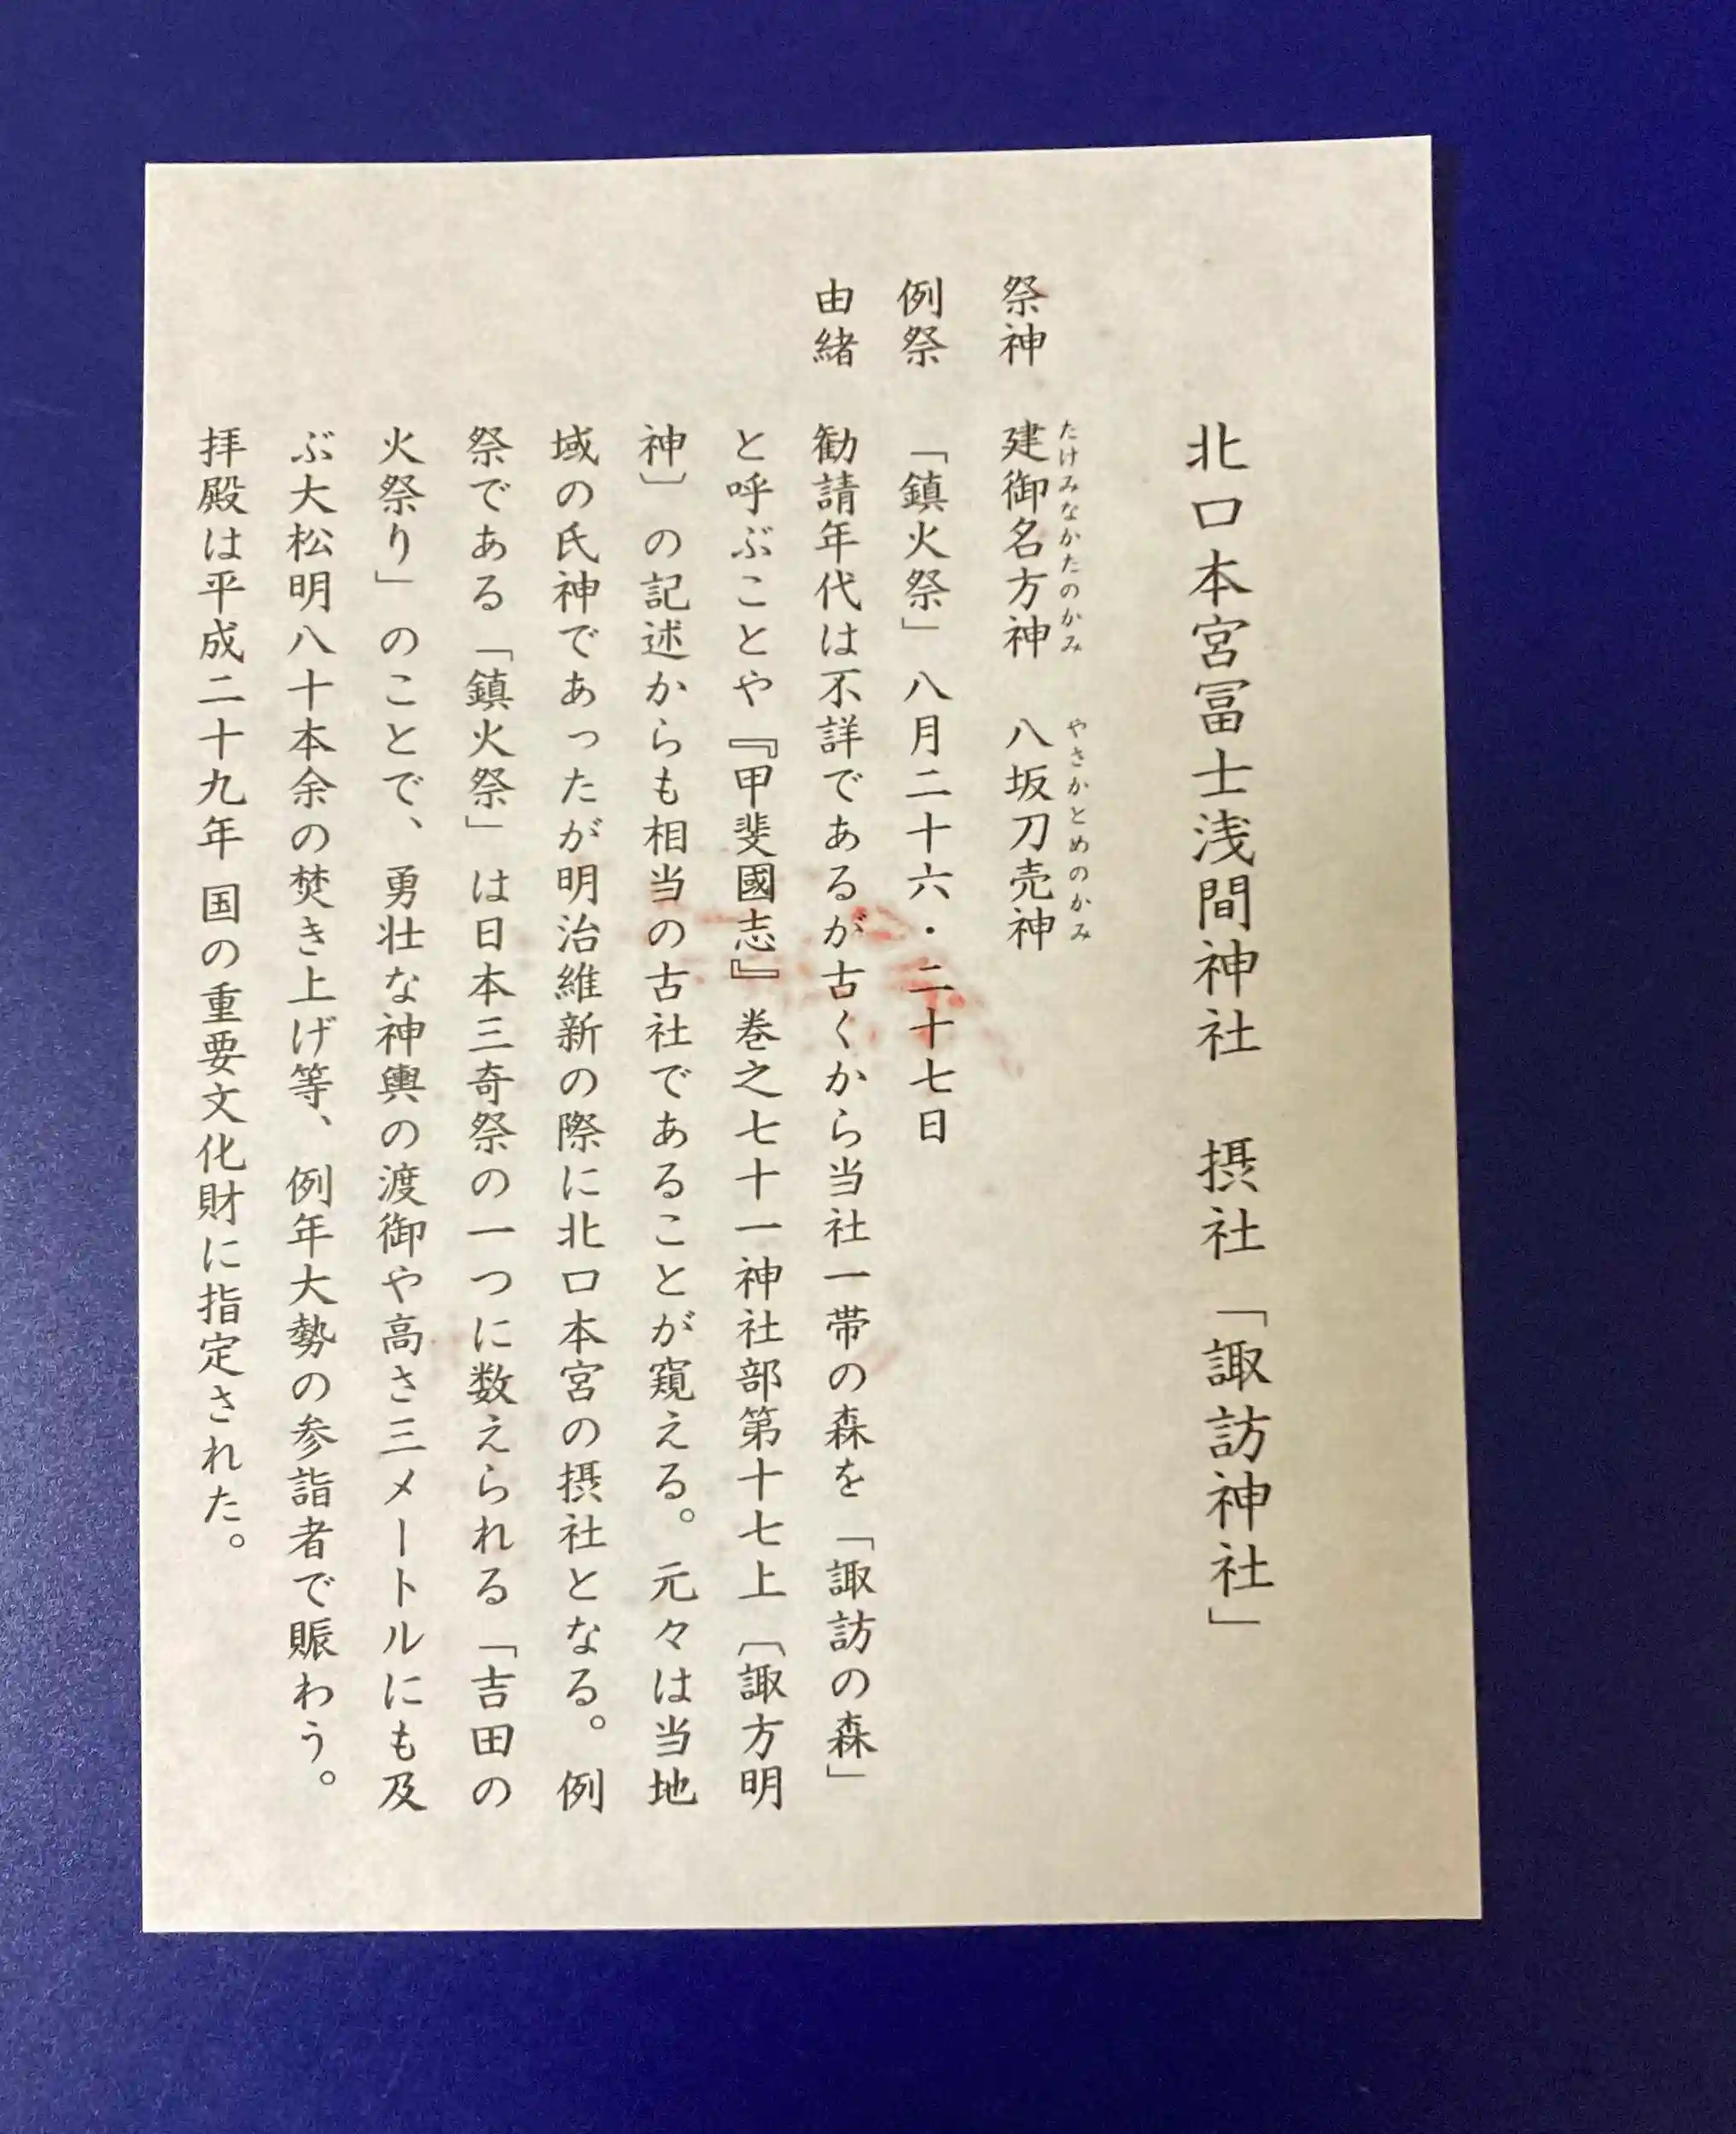 北口本宮冨士浅間神社　摂社「諏訪神社」
祭神　建御名方神　八坂刀売神
たけみなかたのかみ　やさかとめのかみ
例祭　「鎮火祭」八月二十六・二十七日
由緒　勧請年代は不詳であるが古くから当社一帯の森を「諏訪の森」
と呼ぶことや『甲斐國志』巻之七十一神社部第十七上〔諏方明
神〕の記述からも相当の古社であることが窺える。元々は当地
域の氏神であったが明治維新の際に北口本宮の摂社となる。例
祭である「鎮火祭」は日本三奇祭の一つに数えられる「吉田の
火祭り」のことで、勇壮な神輿の渡御や高さ三メートルにも及
ぶ大松明八十本余の焚き上げ等、例年大勢の参詣者で賑わう。
拝殿は平成二十九年国の重要文化財に指定された。